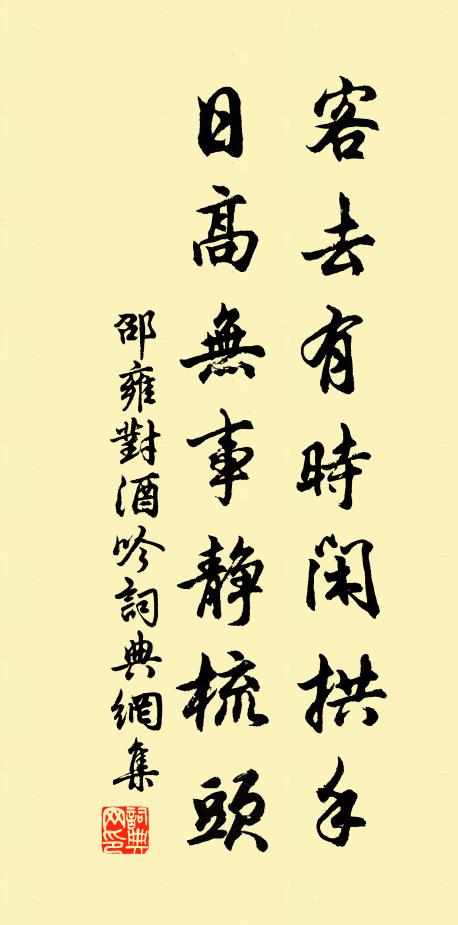 客去有時閑拱手
日高無事静梳頭
邵雍對酒吟詞典網集
詞典網印